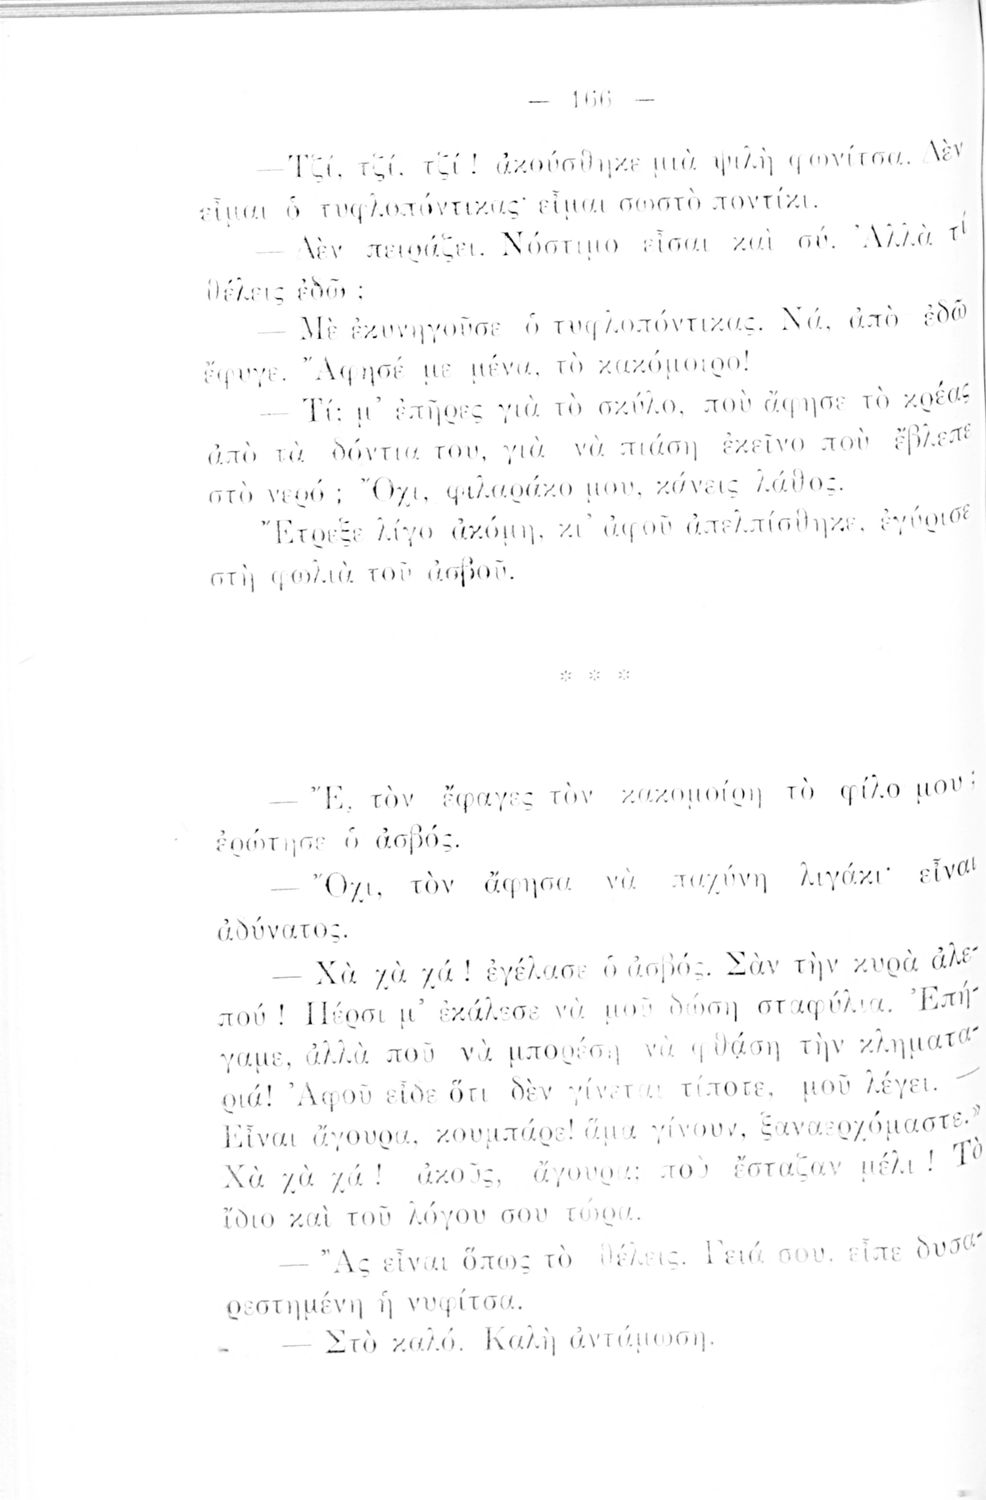 — 166 —
—Τζί, τζί, τζί ! ἀκούσθηκε μιὰ ψιλὴ φωνίτσα. Δὲν
εἶμαι ὁ τυφλοπόντικας· εἶμαι σωστὸ ποντίκι.
— Δὲν πειράζει. Νόστιμο εἶσαι καὶ σύ. Ἀλλὰ τί
θέλεις ἐδῶ ;
— Μὲ ἐκυνηγοῦσε ὁ τυφλοπόντικας. Νά, ἀπὸ ἐδῶ
ἔφυγε. Ἄφησέ με μένα, τὸ κακόμοιρο!
— Τί; μ’ ἐπῆρες γιὰ τὸ σκύλο, ποὺ ἄφησε τὸ κρέας
ἀπὸ τὰ δόντια του, γιὰ νὰ πιάση ἐκεῖνο ποὺ ἔβλεπε
στὸ νερό ; Ὄχι, φιλαράκο μου, κάνεις λάθος.
Ἔτρεξε λίγο ἀκόμη, κι’ ἀφοῦ ἀπελπίσθηκε, ἐγύρισε
στὴ φωλιὰ τοῦ ἀσβοῦ.
* * *
— Ἔ, τὸν ἔφαγες τὸν κακομοίρη τὸ φίλο μου ;
ἐρώτησε ὁ ἀσβός.
— Ὄχι, τὸν ἄφησα νὰ παχύνη λιγάκι· εἶναι
ἀδύνατος.
— Χὰ χὰ χά ! ἐγέλασε ὁ ἀσβός. Σὰν τὴν κυρὰ ἀλε-
πού ! Πέρσι μ’ ἐκάλεσε νὰ μοῦ δώση σταφύλια. Ἐπή-
γαμε, ἀλλὰ ποῦ νὰ μπορέση νὰ φθάση τὴν κληματα-
ριά! Ἀφοῦ εἶδε ὅτι δὲν γίνεται τίποτε, μοῦ λέγει. —
Εἶναι ἄγουρα, κουμπάρε! ἅμα γίνουν, ξαναερχόμαστε.»
Χὰ χὰ χά ! ἀκοῦς, ἄγουρα; ποὺ ἔσταζαν μέλι ! Τὸ
ἴδιο καὶ τοῦ λόγου σου τώρα.
— Ἂς εἶναι ὅπως τὸ θέλεις. Γειά σου, εἶπε δυσα-
ρεστημένη ἡ νυφίτσα.
— Στὸ καλό. Καλὴ ἀντάμωση.